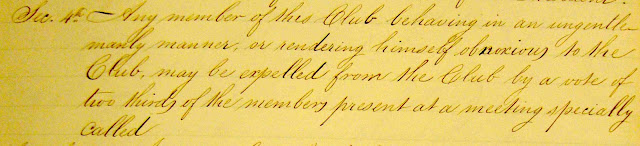 Sec. 4th Any member of this Club behaving in an ungentle-
manly manner, or rendering himself obnoxious to the
Club, may be expelled from the Club by a vote of
two thirds of the members present at a meeting specially
called